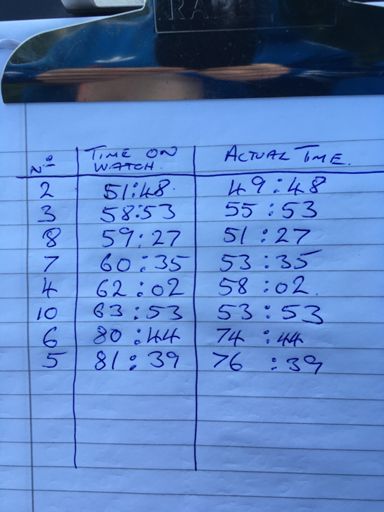 Nº TIME ON WATCH. ACTUAL TIME.
2 51:48. 49:48
3 58:53 55:53
8 59:27 51:27
7 60:35 53:35
4 62:02 58:02.
10 63:53 53:53
6 80:44 74:44
5 81:39 76:39